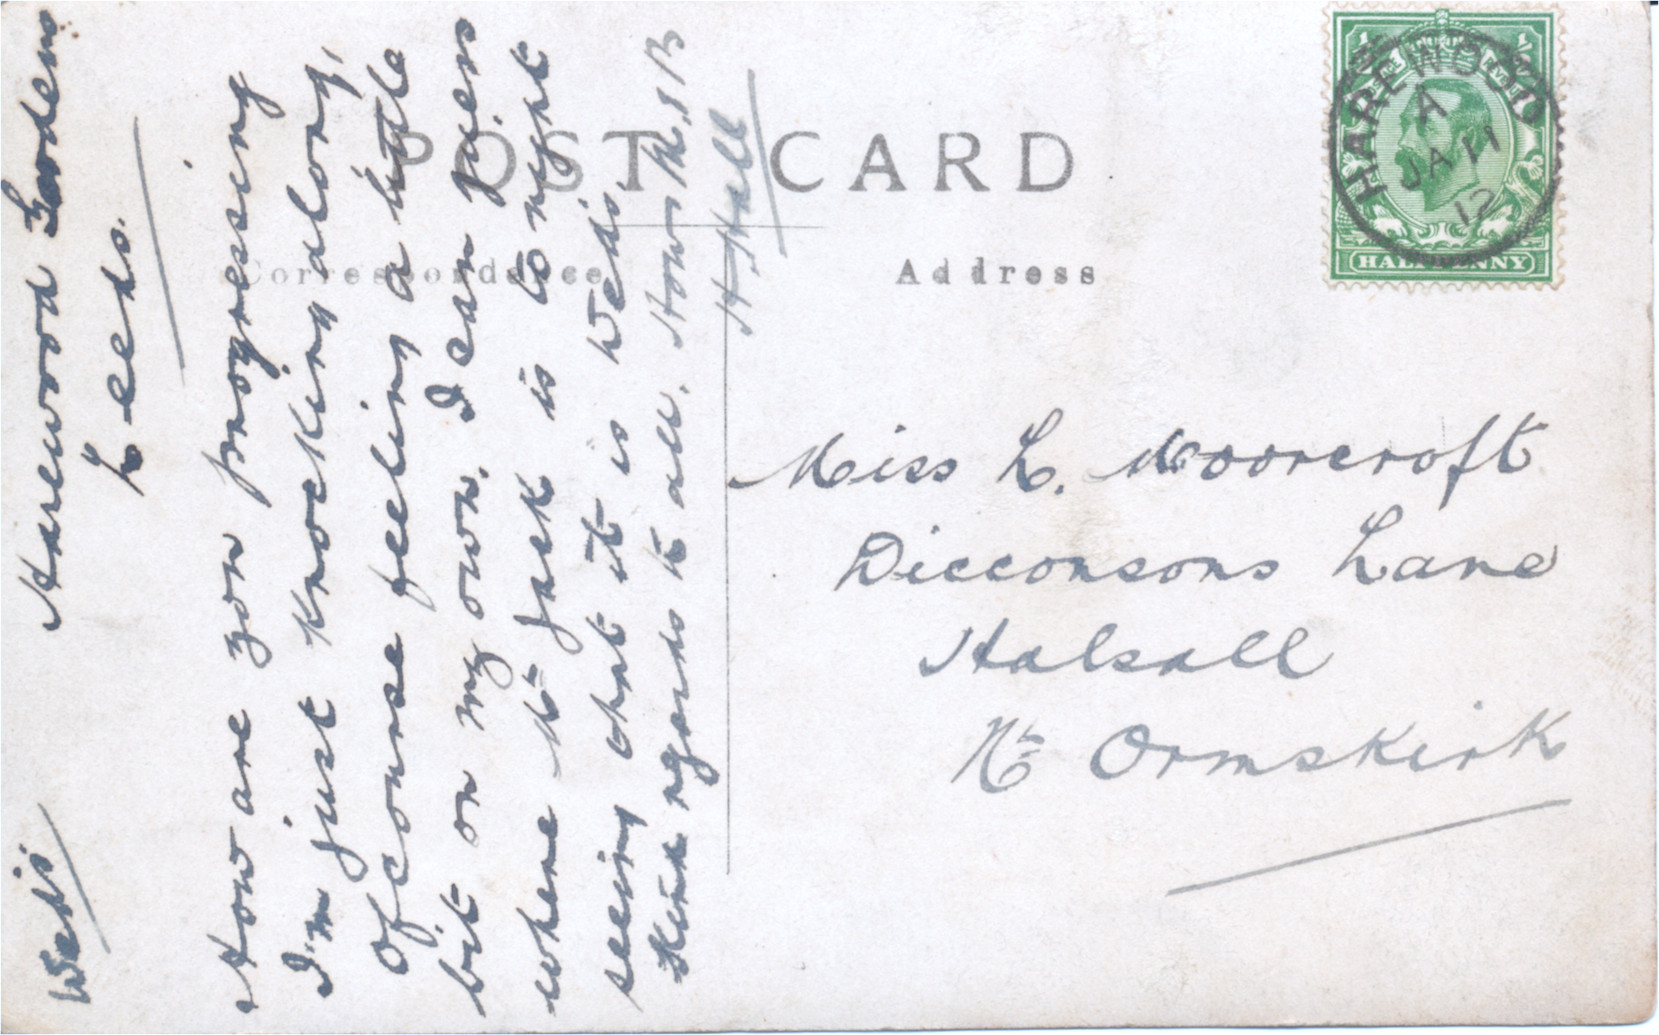 POST CARD
Correspondence
Address
HAREWOOD
A
JA 11
12
HALFPENNY
Wed's
Harewood Gardens
Leeds.
How are you progressing
I'm just knocking along,
of course feeling a little
bit on my own. I can guess
where Mr Jack is to night
seeing that it is Wed's.
Kind regards to all.
H. Hall
Miss L. Moorcroft
Dicconsons Lane
Halsall
Nr Ormskirk